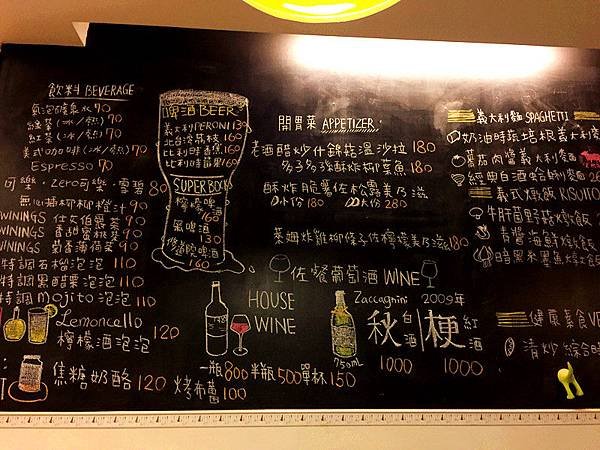 飲料 BEVERAGE
氣泡礦泉水 70
綠茶(冰/熱) 70
紅茶(冰/熱) 70
美式咖啡(冰/熱) 70
Espresso 70
可樂・zero可樂・雪碧
無心插柳柳橙汁 90
WININGS 仕女伯爵茶 90
WININGS 香甜蜜桃茶 90
WININGS 菊香薄荷茶 90
特調石榴泡泡 110
特調黑醋栗泡泡 110
特調 Mojito 泡泡 110
Lemoncello
檸檬酒泡泡 120
焦糖奶酪 120
烤布蕾 100
啤酒 BEER
義大利 PERONI 130
比利時蘋果 160
SUPER BOCK
檸檬啤酒 160
黑啤酒 130
修道院啤酒 160
開胃菜 APPETIZER
老酒醋炒什錦菇溫沙拉 180
多子多孫酥炸柳葉魚 180
酥炸脆薯佐松露美乃滋
小份 180 大份 280
萊姆炸雞柳條子佐檸檬美乃滋 180
佐餐葡萄酒 WINE
HOUSE
WINE
一瓶 800 半瓶 500 單杯 150
Zaccagnini 2009年
秋 白酒 梗 紅酒
750mL 1000 1000
義大利麵 SPAGHETTI
奶油時蔬培根義大利
蕃茄肉醬義大利麵
經典白酒蛤蜊
義式燉飯
牛肝菌野菇燉飯
青醬海鮮燉飯
暗黑米墨魚燉飯
健康素食 VE
清炒綜合時